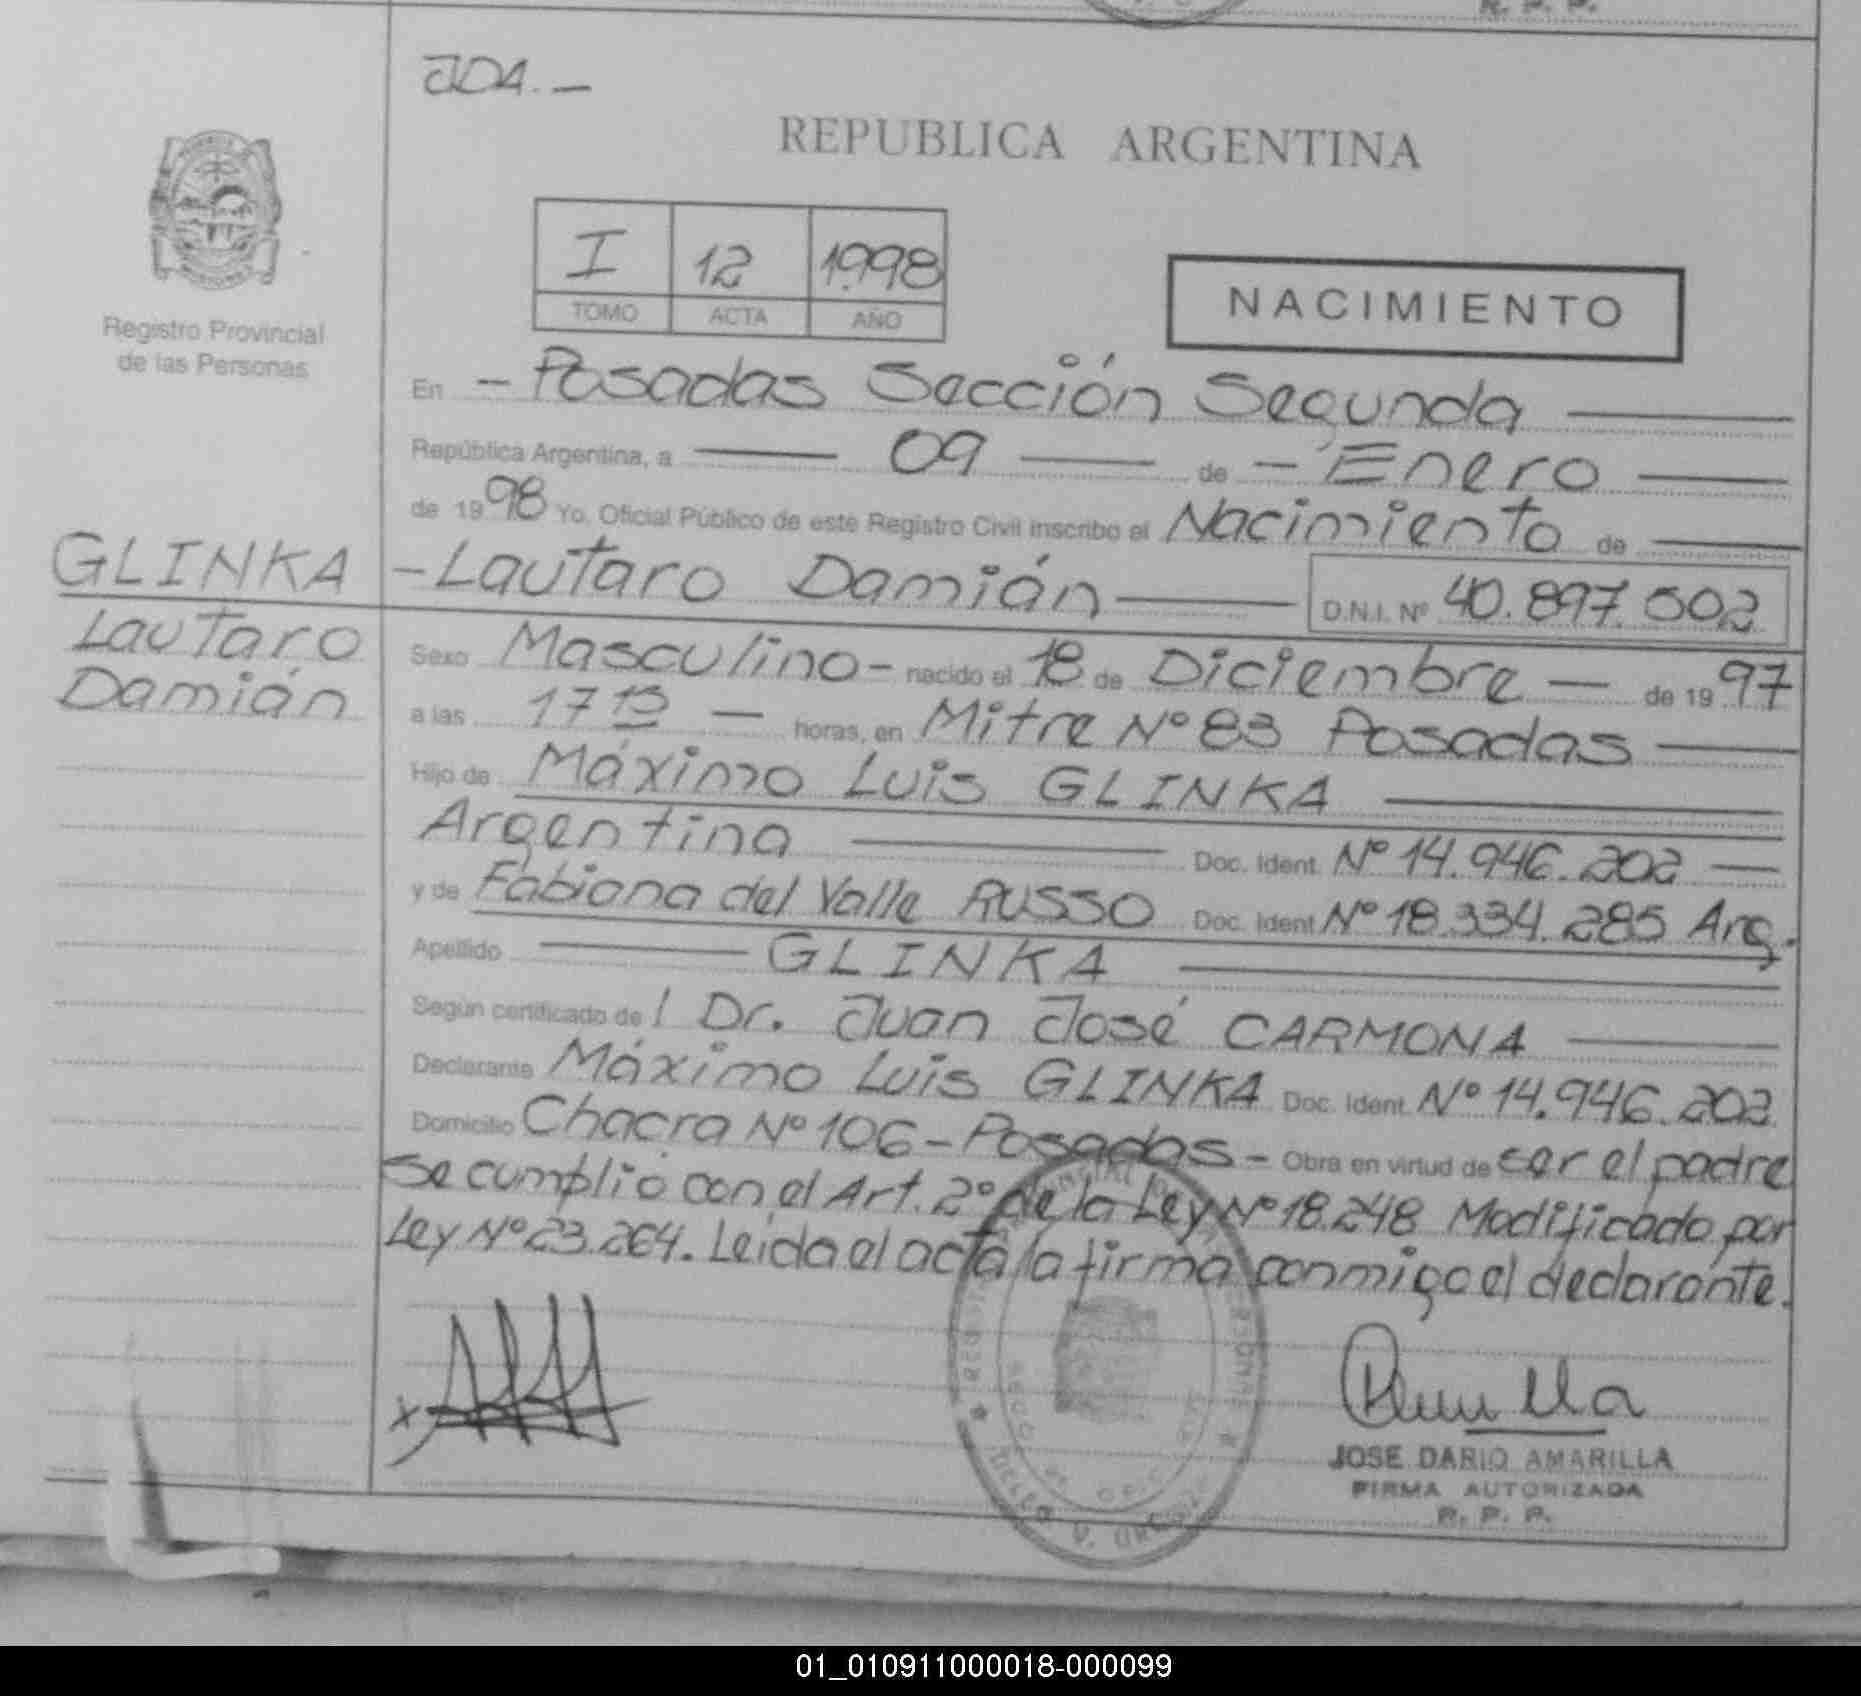 R. P. P.
JDA. —
REPUBLICA ARGENTINA
I 12 1.998
TOMO ACTA AÑO
NACIMIENTO
Registro Provincial
de las Personas
En – Posadas Sección Segunda
República Argentina, a 09 de – Enero
de 1998 Yo, Oficial Público de este Registro Civil inscribo el Nacimiento de
GLINKA – Lautaro Damián D.N.I. Nº 40.897.502
Lautaro
Damián
Sexo Masculino – nacido el 18 de Diciembre — de 1997
a las 17 15 — horas, en Mitre Nº 83 Posadas
Hijo de Máximo Luis GLINKA
Argentina Doc. Ident. Nº 14.946.202 —
y de Fabiana del Valle RUSSO Doc. Ident Nº 18.334.285 Arg.
Apellido GLINKA
Según certificado de l Dr. Juan José CARMONA
Declarante Máximo Luis GLINKA Doc. Ident. Nº 14.946.202
Domicilio Chacra Nº 106 – Posadas – Obra en virtud de ser el padre
Se cumplió con el Art. 2º de la Ley Nº 18.248 Modificado por
Ley Nº 23.264. Leida el acta la firma conmigo el declarante.
JOSE DARIO AMARILLA
FIRMA AUTORIZADA
R. P. P.
01_010911000018-000099